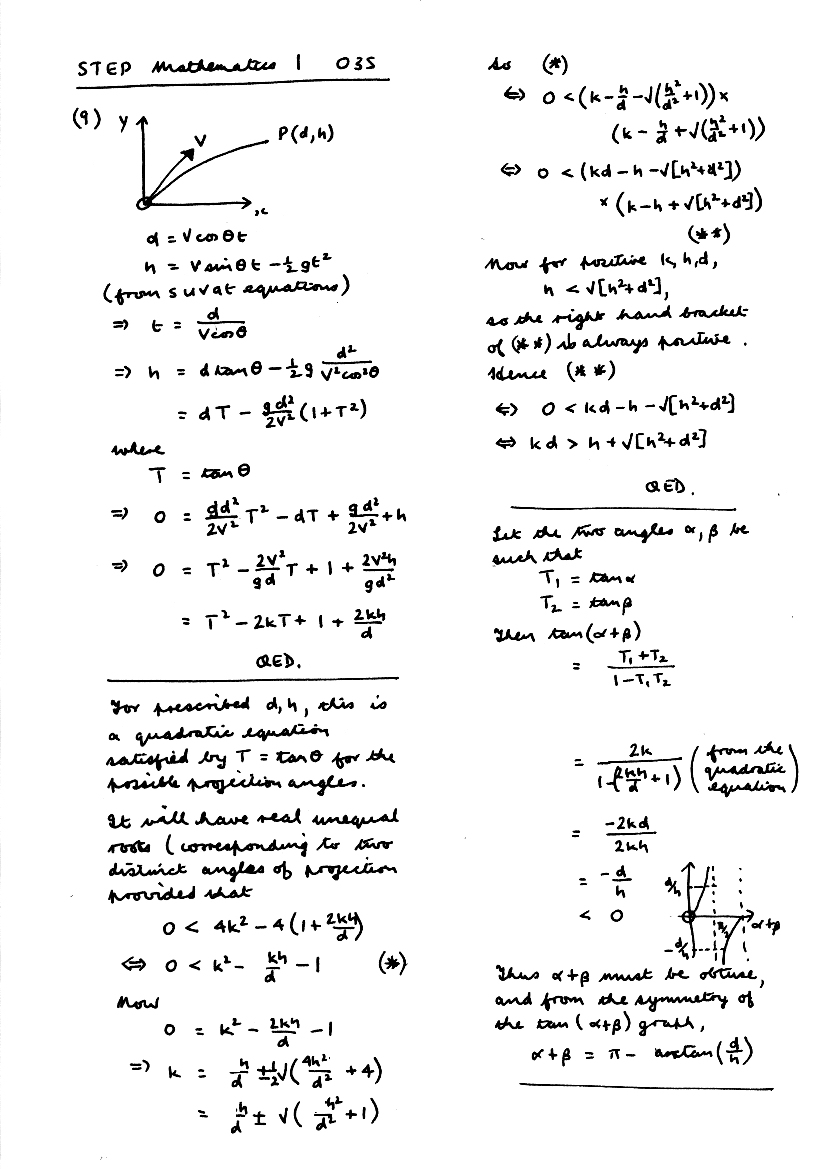 STEP Mathematics I 03S
(9) Y
V
P(d,h)
x
d = V cos θ t
h = V sin θ t - ½ gt²
(from suvat equations)
⇒ t = d / (V cos θ)
⇒ h = d tan θ - ½ g d² / (V² cos² θ)
= dT - gd²/2V² (1+T²)
where
T = tan θ
⇒ 0 = gd²/2V² T² - dT + gd²/2V² + h
⇒ 0 = T² - 2V²/gd T + 1 + 2V²h/gd²
= T² - 2kT + 1 + 2kh/d
QED.
For prescribed d, h, this is
a quadratic equation
satisfied by T = tan θ for the
possible projection angles.
It will have real unequal
roots (corresponding to two
distinct angles of projection
provided that
0 < 4k² - 4(1 + 2kh/d)
⇔ 0 < k² - kh/d - 1 (*)
Now
0 = k² - 2kh/d - 1
⇒ k = h/d ± ½√(4h²/d² + 4)
= h/d ± √(h²/d² + 1)
So (*)
⇔ 0 < (k - h/d - √(h²/d² + 1)) ×
(k - h/d + √(h²/d² + 1))
⇔ 0 < (kd - h - √[h²+d²])
× (k - h + √[h²+d²])
(**)
Now for positive k, h, d,
h < √[h²+d²],
so the right hand bracket
of (**) is always positive.
Hence (**)
⇔ 0 < kd - h - √[h²+d²]
⇔ kd > h + √[h²+d²]
QED.
Let the two angles α, β be
such that
T₁ = tan α
T₂ = tan β
Then tan(α+β)
= (T₁ + T₂) / (1 - T₁T₂)
= 2k / (1 - (2kh/d + 1)) (from the quadratic equation)
= -2kd / 2kh
= -d/h
< 0
d/h
π/2
α+β
-d/h
Thus α+β must be obtuse,
and from the symmetry of
the tan(α+β) graph,
α+β = π - arctan(d/h)